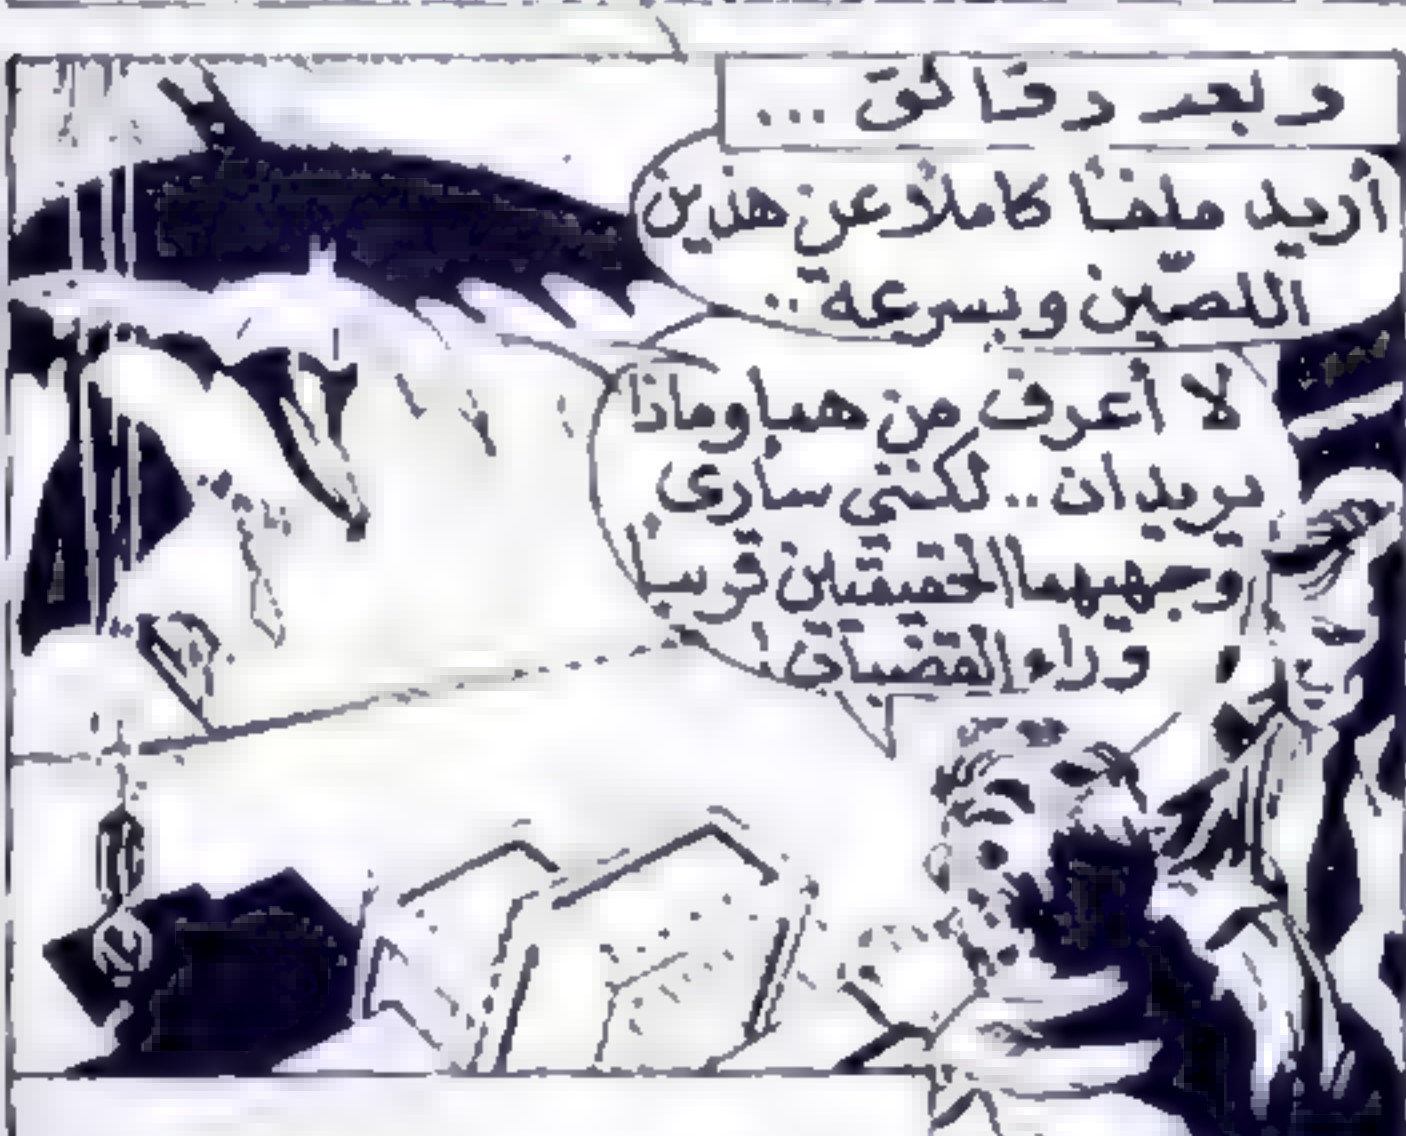 وبعد دقائق ...
أريد ملفاً كاملاً عن هذين
اللصّين وبسرعة ..
لا أعرف من هما وماذا
يريدان .. لكنني سأرى
وجهيهما الحقيقيّين قريباً
وراء القضبان !